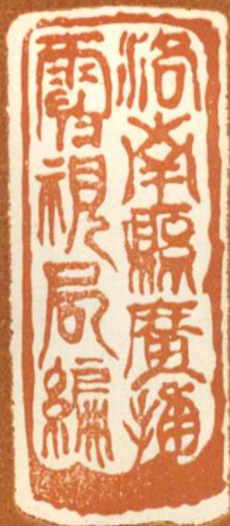 洛南縣廣播
電視局編